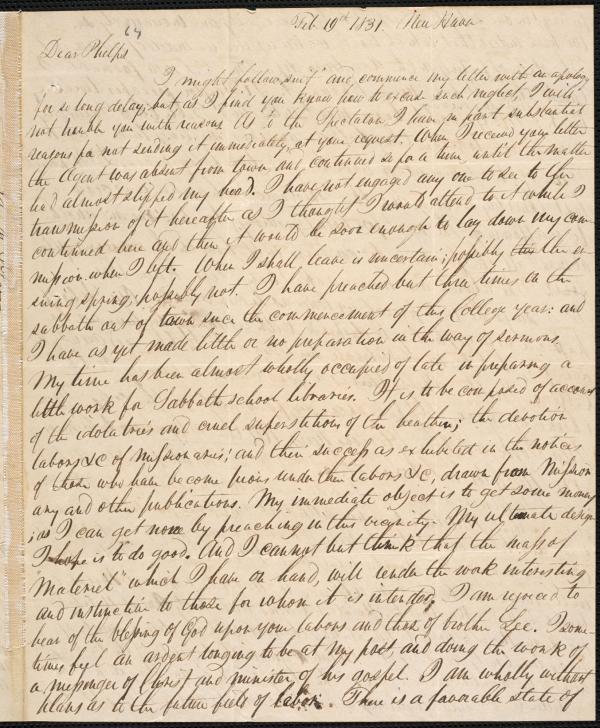 Feb. 19th 1831. New Haven
64
Dear Phelps
I might follow suit and commence my letter with an apology
for so long delay; but, as I find you know how to excuse such neglect, I will
not trouble you with reasons. As to the Spectator I have in part substantial
reasons for not sending it immediately, at your request. When I received your letter
the Agent was absent from town and continued so for a time until the matter
had almost slipped my head. I have not engaged any one to see to the
transmission of it hereafter as I thought I would attend to it while I
continued here and then it would be soon enough to lay down my com-
mission when I left. When I shall leave is uncertain; possibly the en-
suing spring; possibly not. I have preached but three times on the
sabbath out of town since the commencement of this College year: and
I have as yet made little or no preparation in the way of sermons.
My time has been almost wholly occupied of late in preparing a
little work for Sabbath school libraries. It is to be composed of accounts
of the idolatries and cruel superstitions of the heathen; the devotion
labors &c of missionaries; and their success as exhibited in the notices
of those who have become pious under their labors &c, drawn from Mission
ary and other publications. My immediate object is to get some money
as I can get none by preaching in this vicinity. My ultimate design
I hope is to do good. And I cannot but think that the mass of
"Materiel" which I have on hand, will render the work interesting
and instructive to those for whom it is intended. I am rejoiced to
hear of the blessing of God upon your labors and those of brother Lee. I some-
times feel an ardent longing to be at my post, and doing the work of
a messenger of Christ and minister of his gospel. I am wholly without
plans as to the future field of labor. There is a favorable state of